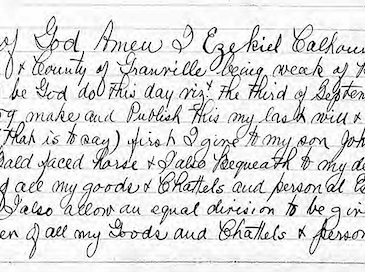 of God Amen I Ezekiel Calhoun
& County of Granville being weak of
be God do this day vizt the third of Septem
make and Publish this my last will &
that is to say) first I give to my son Joh
Bald faced horse & I also Bequeath to my d
of all my goods & Chattels and personal Es
I also allow an equal division to be giv
en of all my Goods and Chattels & person